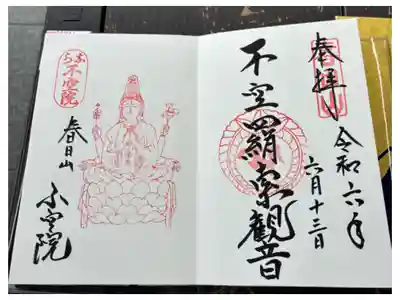 奉拝
令和六年
六月十三日
不空羂索観音
なら
不空院
春日山
不空院